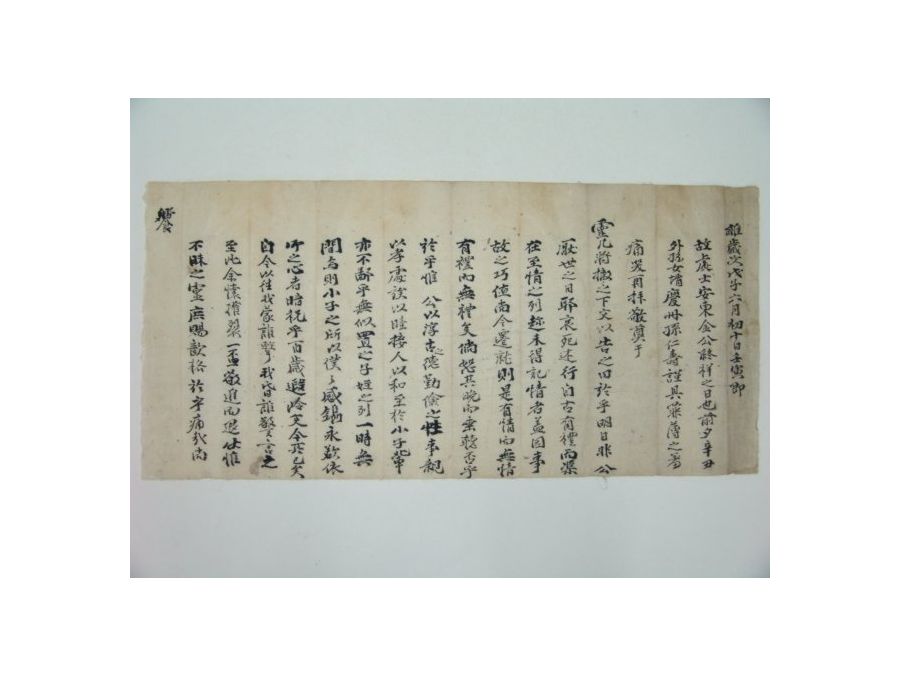 維歲次戊子六月初十日壬寅卽
故處士安東金公終祥之日也前夕辛丑
外孫女壻慶州孫仁壽謹具菲薄之羞
痛哭再拜敬奠于
靈几將撤之下文以告之曰於乎明日非公
厭世之日耶哀死述行自古有禮而渠
在至情之列趁未得記情者盖因事
故之巧値而今遷就則是有情而無情
有禮而無禮矣倘恕其晩而垂聽否乎
於乎惟公以淳古德勤儉之性事親
以孝處族以睦接人以和至於小子輩
亦不鄙乎無似置之子姪之列一時無
間焉則小子之所以僕僕感鏤永歎依
仰之心者暗祝乎百歲遐齡矣今焉已矣
自今以往我蒙誰擊我昏誰警言之
至此余懷摧裂一盃敬進而退伏惟
不昧之靈庶賜歆格於乎痛哉尙
饗